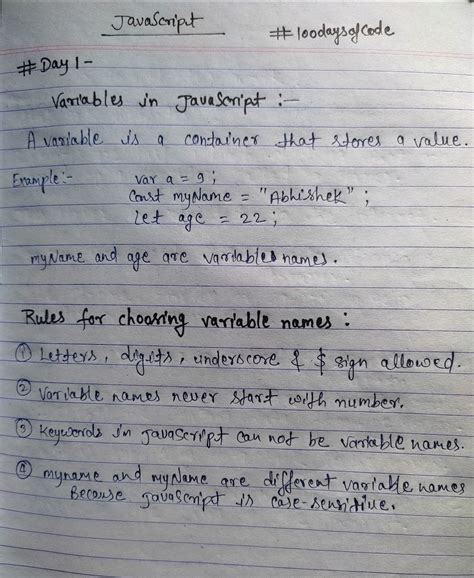 JavaScript
#100daysofCode
#Day 1-
Variables in JavaScript :-
A variable is a container that stores a value.
Example:- var a = 9;
Const myName = "Abhishek";
Let age = 22;
myName and age are variables names.
Rules for choosing variable names :
① Letters, digits, underscore & $ sign allowed.
② Variable names never start with number.
③ Keywords in JavaScript can not be variable names.
④ myname and myName are different variable names
Because JavaScript is case-sensitive.